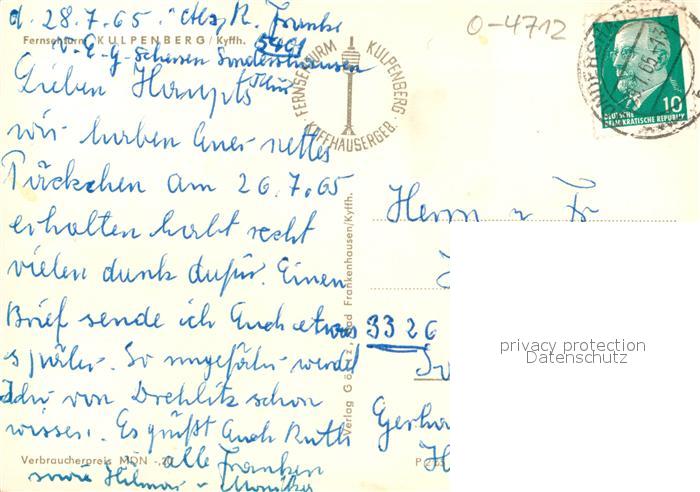 d. 28.7.65. Abs. R. Franke
Fernsehturm KULPENBERG / Kyffh. 5401
Sondershausen
Lieben Haupts
wir haben Euer nettes
Päckchen am 26.7.65
erhalten habt recht
vielen dank dafür. Einen
Brief sende ich Euch etwas
später. So ungefähr werdet
Ihr von Drehlitz schon
wissen. Es grüßt Euch Ruth
alle Franken
sowie Hilmar u. Monika
Verbraucherpreis MDN -,20
FERNSEHTURM KULPENBERG
KYFFHÄUSERGEB.
Verlag Gö Bad Frankenhausen/Kyffh.
0-4712
10
DEUTSCHE
DEMOKRATISCHE REPUBLIK
Herrn u Fr
3326
Gerha
H
privacy protection
Datenschutz